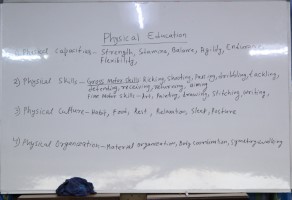 Physical Education
1) Physical Capacities - Strength, Stamina, Balance, Agility, Endurance,
Flexibility,
2) Physical Skills - Gross Motor Skills Kicking, Shooting, Passing, dribbling, tackling,
defending, receiving, removing, aiming
Fine Motor Skills - Painting, drawing, Stitching, writing,
3) Physical Culture - Habit, Food, Rest, Relaxation, Sleep, Posture
4) Physical Organization - Material organization, Body Coordination,